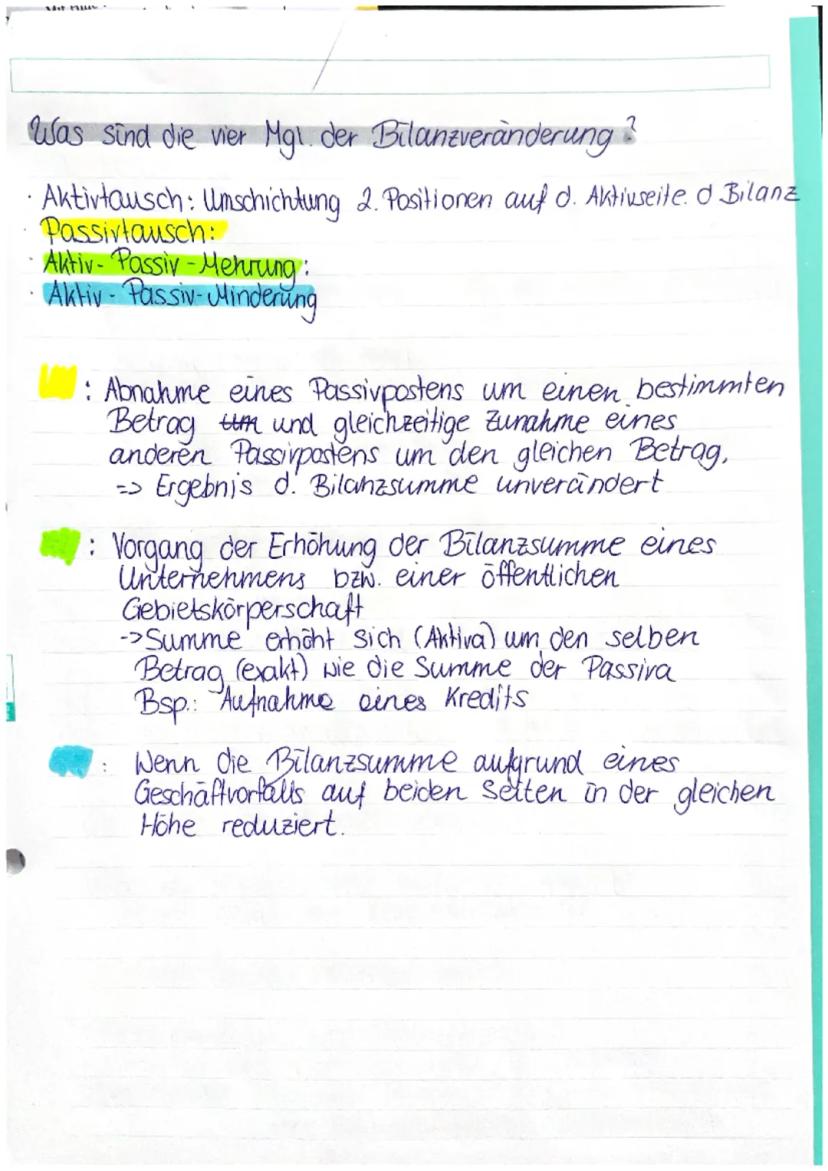 Was sind die vier Mgl. der Bilanzveränderung?
· Aktivtausch: Umschichtung 2. Positionen auf d. Aktivseite. d Bilanz
· Passivtausch:
· Aktiv-Passiv-Mehrung:
· Aktiv-Passiv-Minderung
: Abnahme eines Passivpostens um einen bestimmten
Betrag um und gleichzeitige Zunahme eines
anderen Passivpostens um den gleichen Betrag.
=> Ergebnis d. Bilanzsumme unverändert
: Vorgang der Erhöhung der Bilanzsumme eines
Unternehmens bzw. einer öffentlichen
Gebietskörperschaft
-> Summe erhöht sich (Aktiva) um den selben
Betrag (exakt) wie die Summe der Passiva
Bsp.: Aufnahme eines Kredits
: Wenn die Bilanzsumme aufgrund eines
Geschäftvorfalls auf beiden Seiten in der gleichen
Höhe reduziert.